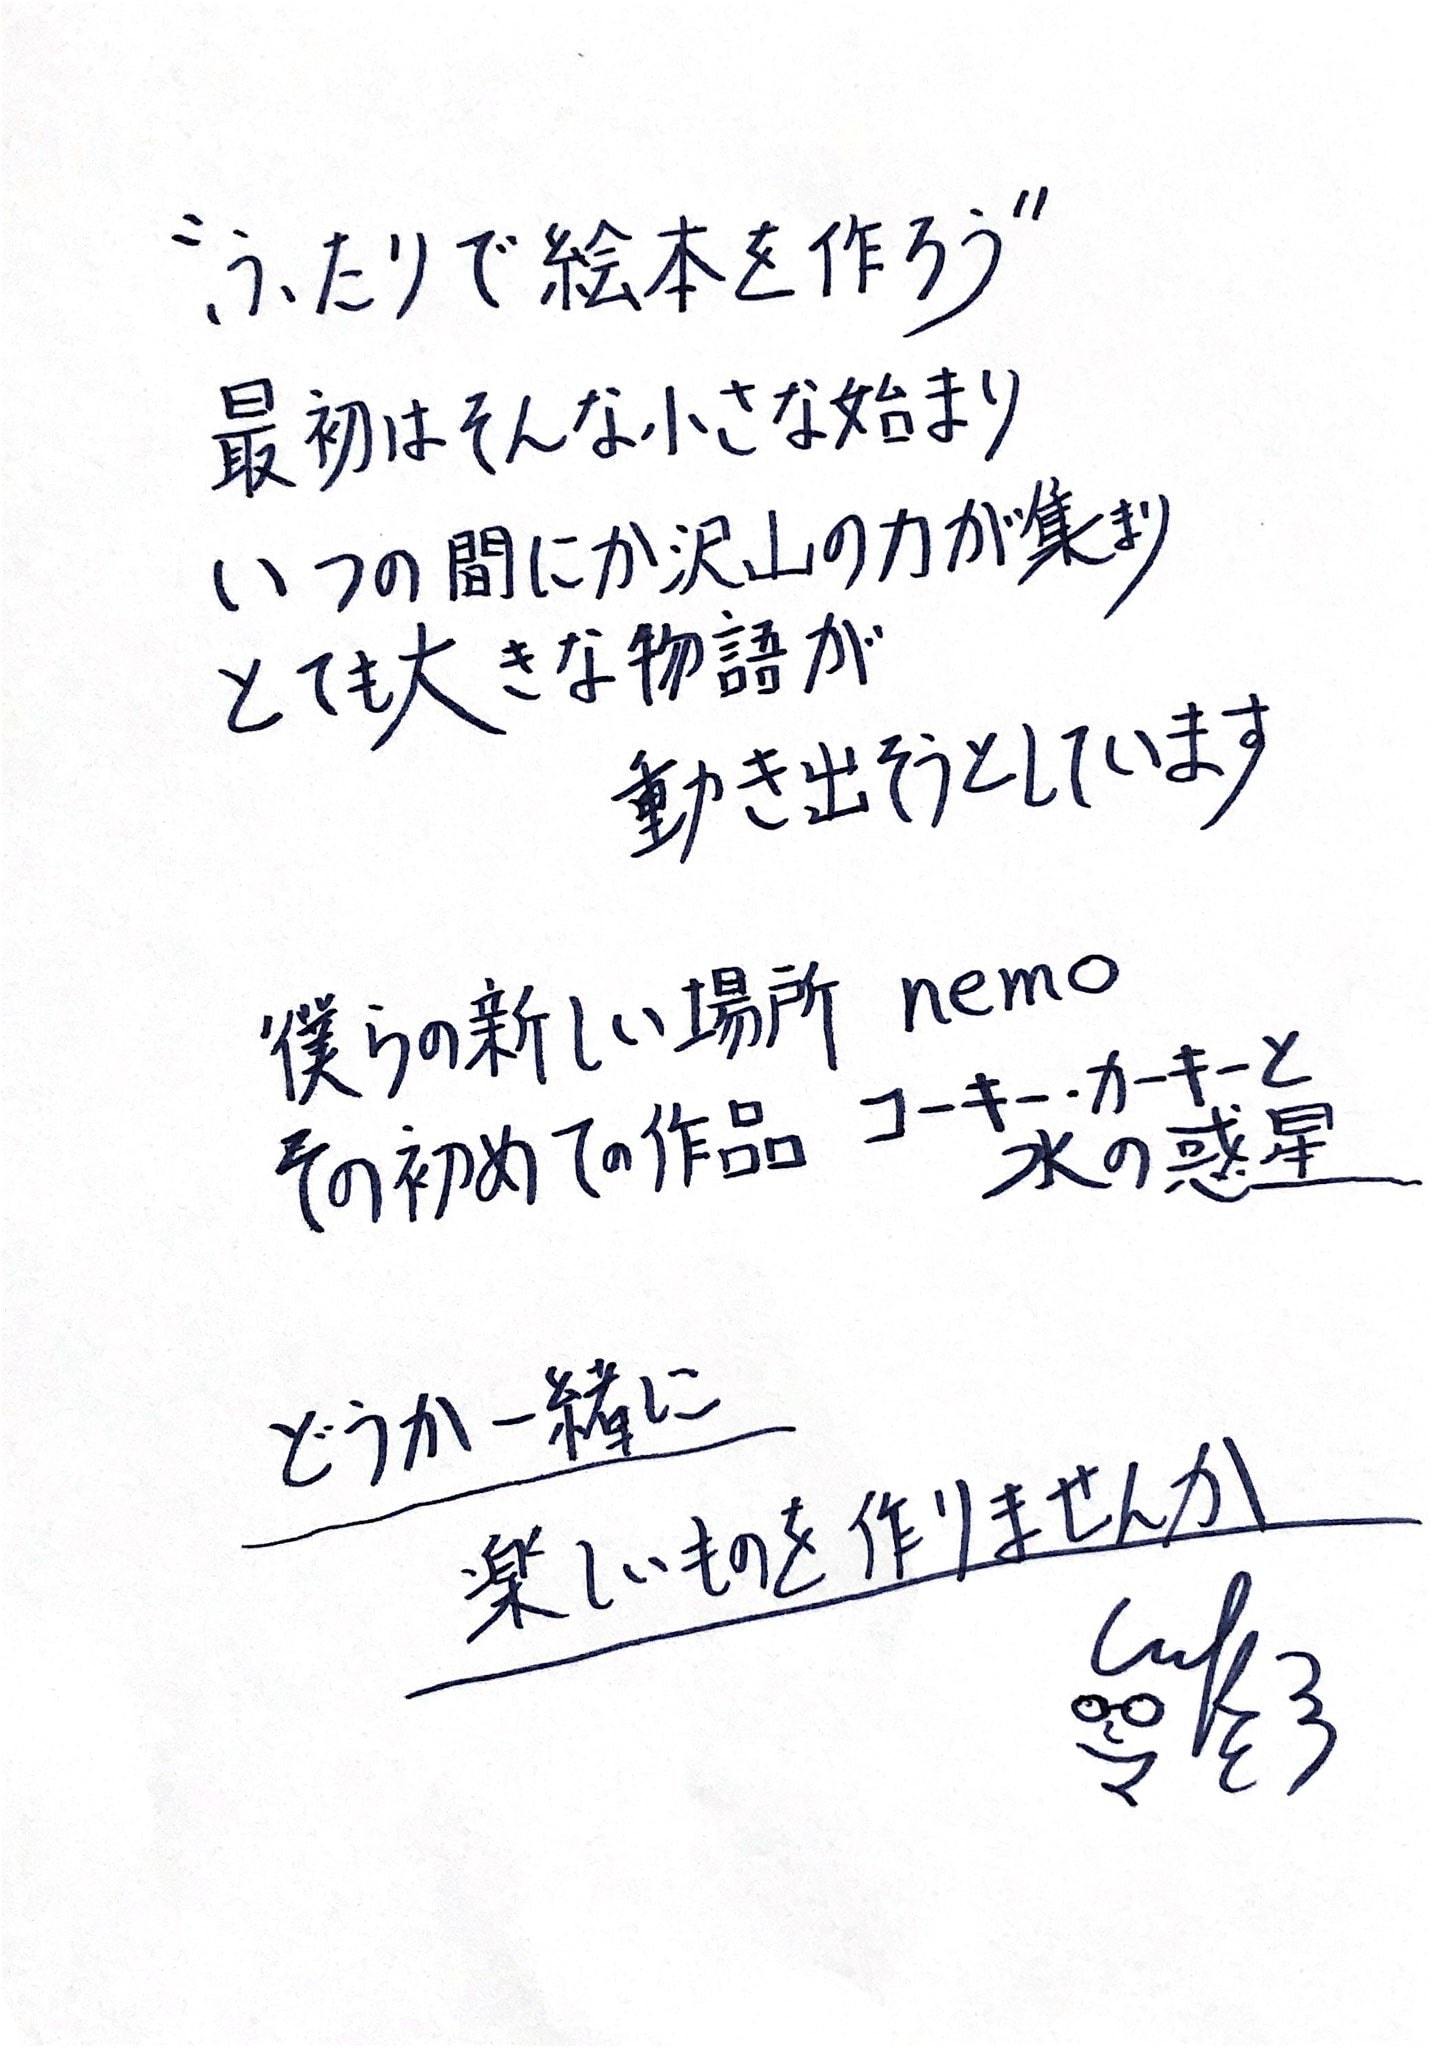 "ふたりで絵本を作ろう"
最初はそんな小さな始まり
いつの間にか沢山の力が集まり
とても大きな物語が
動き出そうとしています
僕らの新しい場所 nemo
その初めての作品 コーキー・カーキーと
水の惑星
どうか一緒に
楽しいものを作りませんか